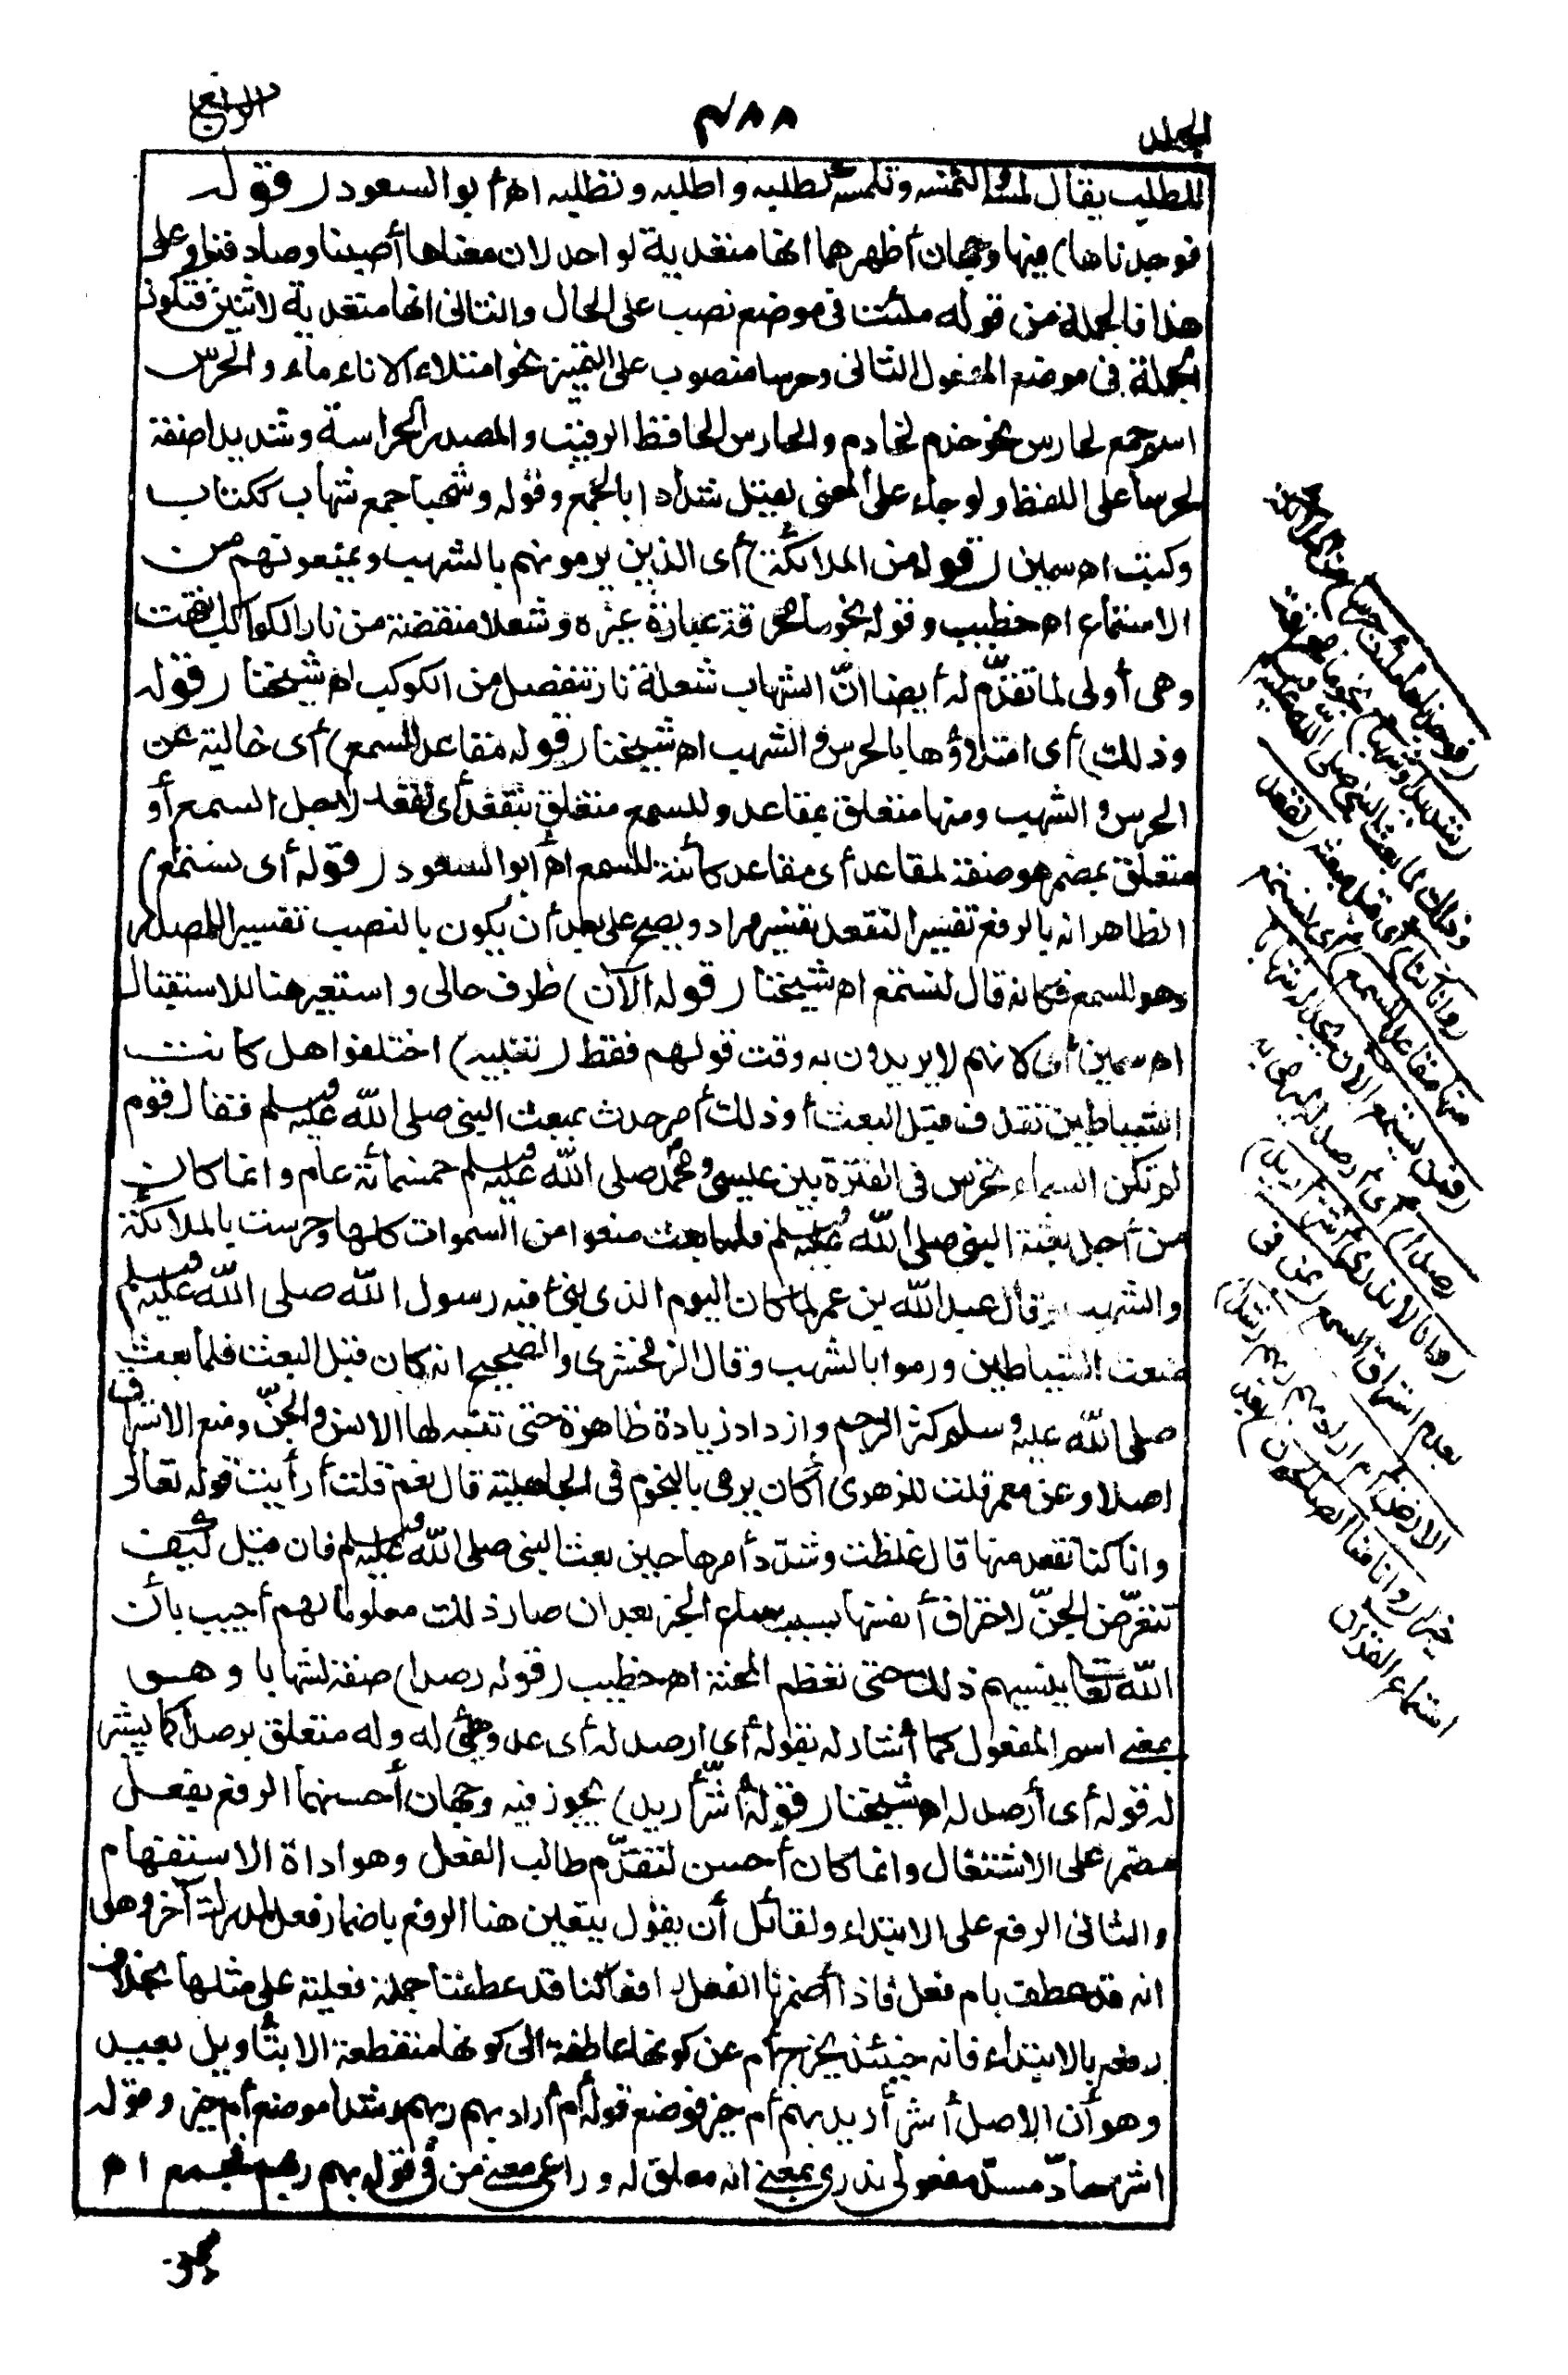 المجلد
٤٨٨
الرابع
للطلب يقال لمسه والتمسه وتلمسه كطلبه واطلبه وتطلبه اهـ أبو السعود (قوله
فوجدناها) فيها وجهان أظهرهما انها متعدية لواحد لان معناها أصبنا وصادفنا وعلى
هذا فالجملة من قوله ملئت فى موضع نصب على الحال والثانى انها متعدية لاثنين فتكون
الجملة فى موضع المفعول الثانى وحرسا منصوب على التمييز نحو امتلاء الاناء ماء والحرس
اسم جمع لحارس نحو خدم لخادم والحارس الحافظ الرقيب والمصدر الحراسة وشديدا صفة
لحرسا على اللفظ ولو جاء على المعنى لقيل شدادا بالجمع وقوله وشهبا جمع شهاب ككتاب
وكتب اهـ سمين (قوله من الملائكة) أى الذين يرمونهم بالشهب ويمنعونهم من
الاستماع اهـ خطيب وقوله نجوما محرقة عبارة غيره وشعلا منقضة من نار الكواكب انتهت
وهى أولى لما تقدّم له أيضا انّ الشهاب شعلة نار تنفصل من الكوكب اهـ شيخنا (قوله
وذلك) أى امتلاؤها بالحرس والشهب اهـ شيخنا (قوله مقاعد للسمع) أى خالية عن
الحرس والشهب ومنها متعلق بمقاعد وللسمع متعلق بنقعد أى نقعد لاجل السمع أو
متعلق بمضمر هو صفة لمقاعد أى مقاعد كائنة للسمع اهـ أبو السعود (قوله أى نستمع)
الظاهر انه بالرفع تفسيرا لنقعد تفسير مراد ويصح على بعد أن يكون بالنصب تفسيرا للمصدر
وهو للسمع فكانه قال لنستمع اهـ شيخنا (قوله الآن) ظرف حالى واستعير هنا للاستقبال
اهـ سمين أى لانهم لا يريدون به وقت قولهم فقط (تنبيه) اختلفوا هل كانت
الشياطين تقذف قبل البعث أو ذلك أمر حدث بمبعث النبى صلى الله عليه وسلم فقال قوم
لم تكن السماء تحرس فى الفترة بين عيسى ومحمد صلى الله عليه وسلم خمسمائة عام وانما كان
من أجل بعثة النبى صلى الله عليه وسلم فلما بعث منعوا من السموات كلها وحرست بالملائكة
والشهب وقال عبد الله بن عمر لما كان اليوم الذى نبئ فيه رسول الله صلى الله عليه وسلم
منعت الشياطين ورموا بالشهب وقال الزمخشرى والصحيح انه كان قبل البعث فلما بعث
صلى الله عليه وسلم كثر الرجم وازداد زيادة ظاهرة حتى تنبه لها الانس والجنّ ومنع الاستراق
اصلا وعن معمر قلت للزهرى أكان يرمى بالنجوم فى الجاهلية قال نعم قلت أرأيت قوله تعالى
وانا كنا نقعد منها قال غلظت وشدّد أمرها حين بعث النبى صلى الله عليه وسلم فان قيل كيف
تتعرّض الجنّ لاحتراق أنفسها بسبب سماع الخبر بعد ان صار ذلك معلوما لهم أجيب بأن
الله تعالى ينسيهم ذلك حتى تعظم المحنة اهـ خطيب (قوله رصدا) صفة لشهابا وهو
بمعنى اسم المفعول كما أشار له بقوله أى ارصد له أى عد وهيئ له وله متعلق برصدا كما يشير
له قوله أى أرصد له اهـ شيخنا (قوله أشرّ أريد) يجوز فيه وجهان أحسنهما الرفع بفعل
مضمر على الاشتغال وانما كان أحسن لتقدّم طالب الفعل وهو اداة الاستفهام
والثانى الرفع على الابتداء ولقائل أن يقول يتعين هنا الرفع باضمار فعل لمدرك آخر وهو
انه قد عطف بام فعل فاذا أضمرنا الفعل رافعا كنا قد عطفنا جملة فعلية على مثلها بخلاف
رفعه بالابتداء فانه حينئذ يخرج أم عن كونها عاطفة الى كونها منقطعة الا بتأويل بعيد
وهو أن الاصل أشر أريد بهم أم خير فوضع قوله أم أراد بهم ربهم رشدا موضع أم خير وقوله
اشر سادّ مسدّ مفعولى ندرى بمعنى انه معلق له وراعى معنى من فى قوله بهم ربهم فجمع اهـ
(فوجدناها ملئت حرسا) من الملائكة
(شديدا وشهبا) نجوما محرقة
وذلك لما بعث النبى صلى الله عليه وسلم
(وانا كنا) أى قبل مبعثه (نقعد
منها مقاعد للسمع) أى نستمع
(فمن يستمع الآن يجد له شهابا
رصدا) أى أرصد له ليرمى به
(وانا لا ندرى أشر أريد)
بعدم استراق السمع (بمن فى
الارض أم أراد بهم ربهم رشدا)
خيرا (وانا منا الصالحون) بعد
استماع القرآن